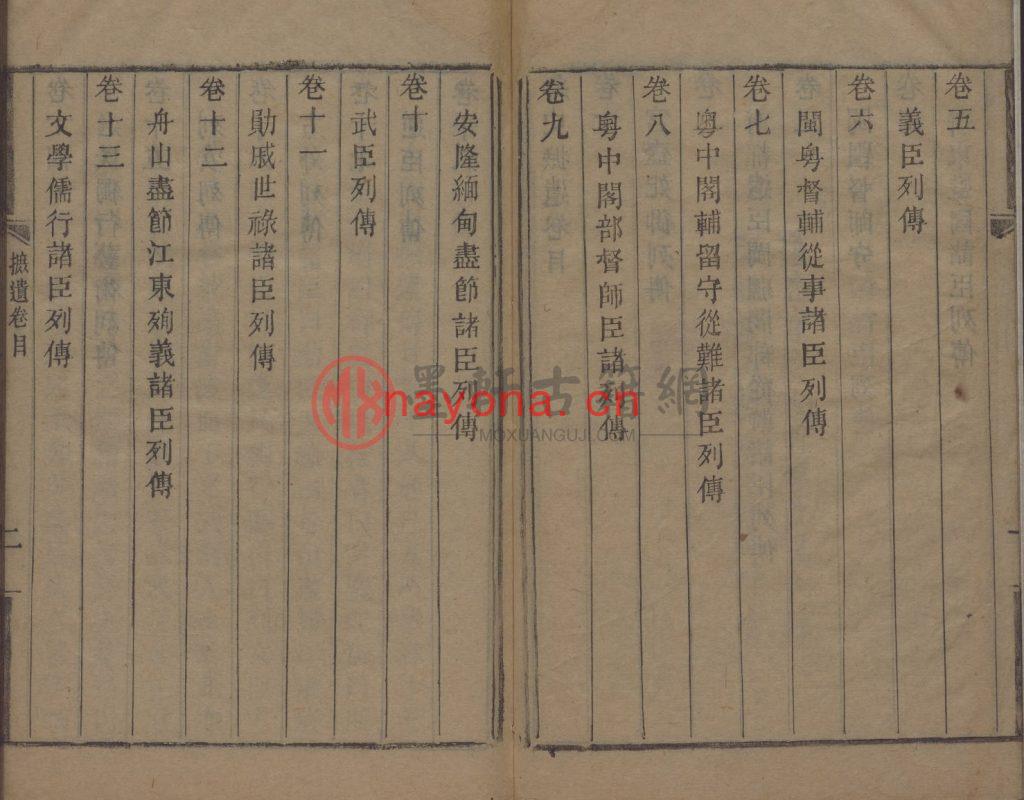 卷五
義臣列傳
卷六
閩粵督輔從事諸臣列傳
卷七
粵中閣輔留守從難諸臣列傳
卷八
粵中閣部督師臣諸列傳
卷九
安隆緬甸盡節諸臣列傳
卷十
武臣列傳
卷十一
勛戚世祿諸臣列傳
卷十二
舟山盡節江東殉義諸臣列傳
卷十三
文學儒行諸臣列傳
摭遺卷目
二
墨軒古籍網
MOXUANGUJI.COM
nayona.cn